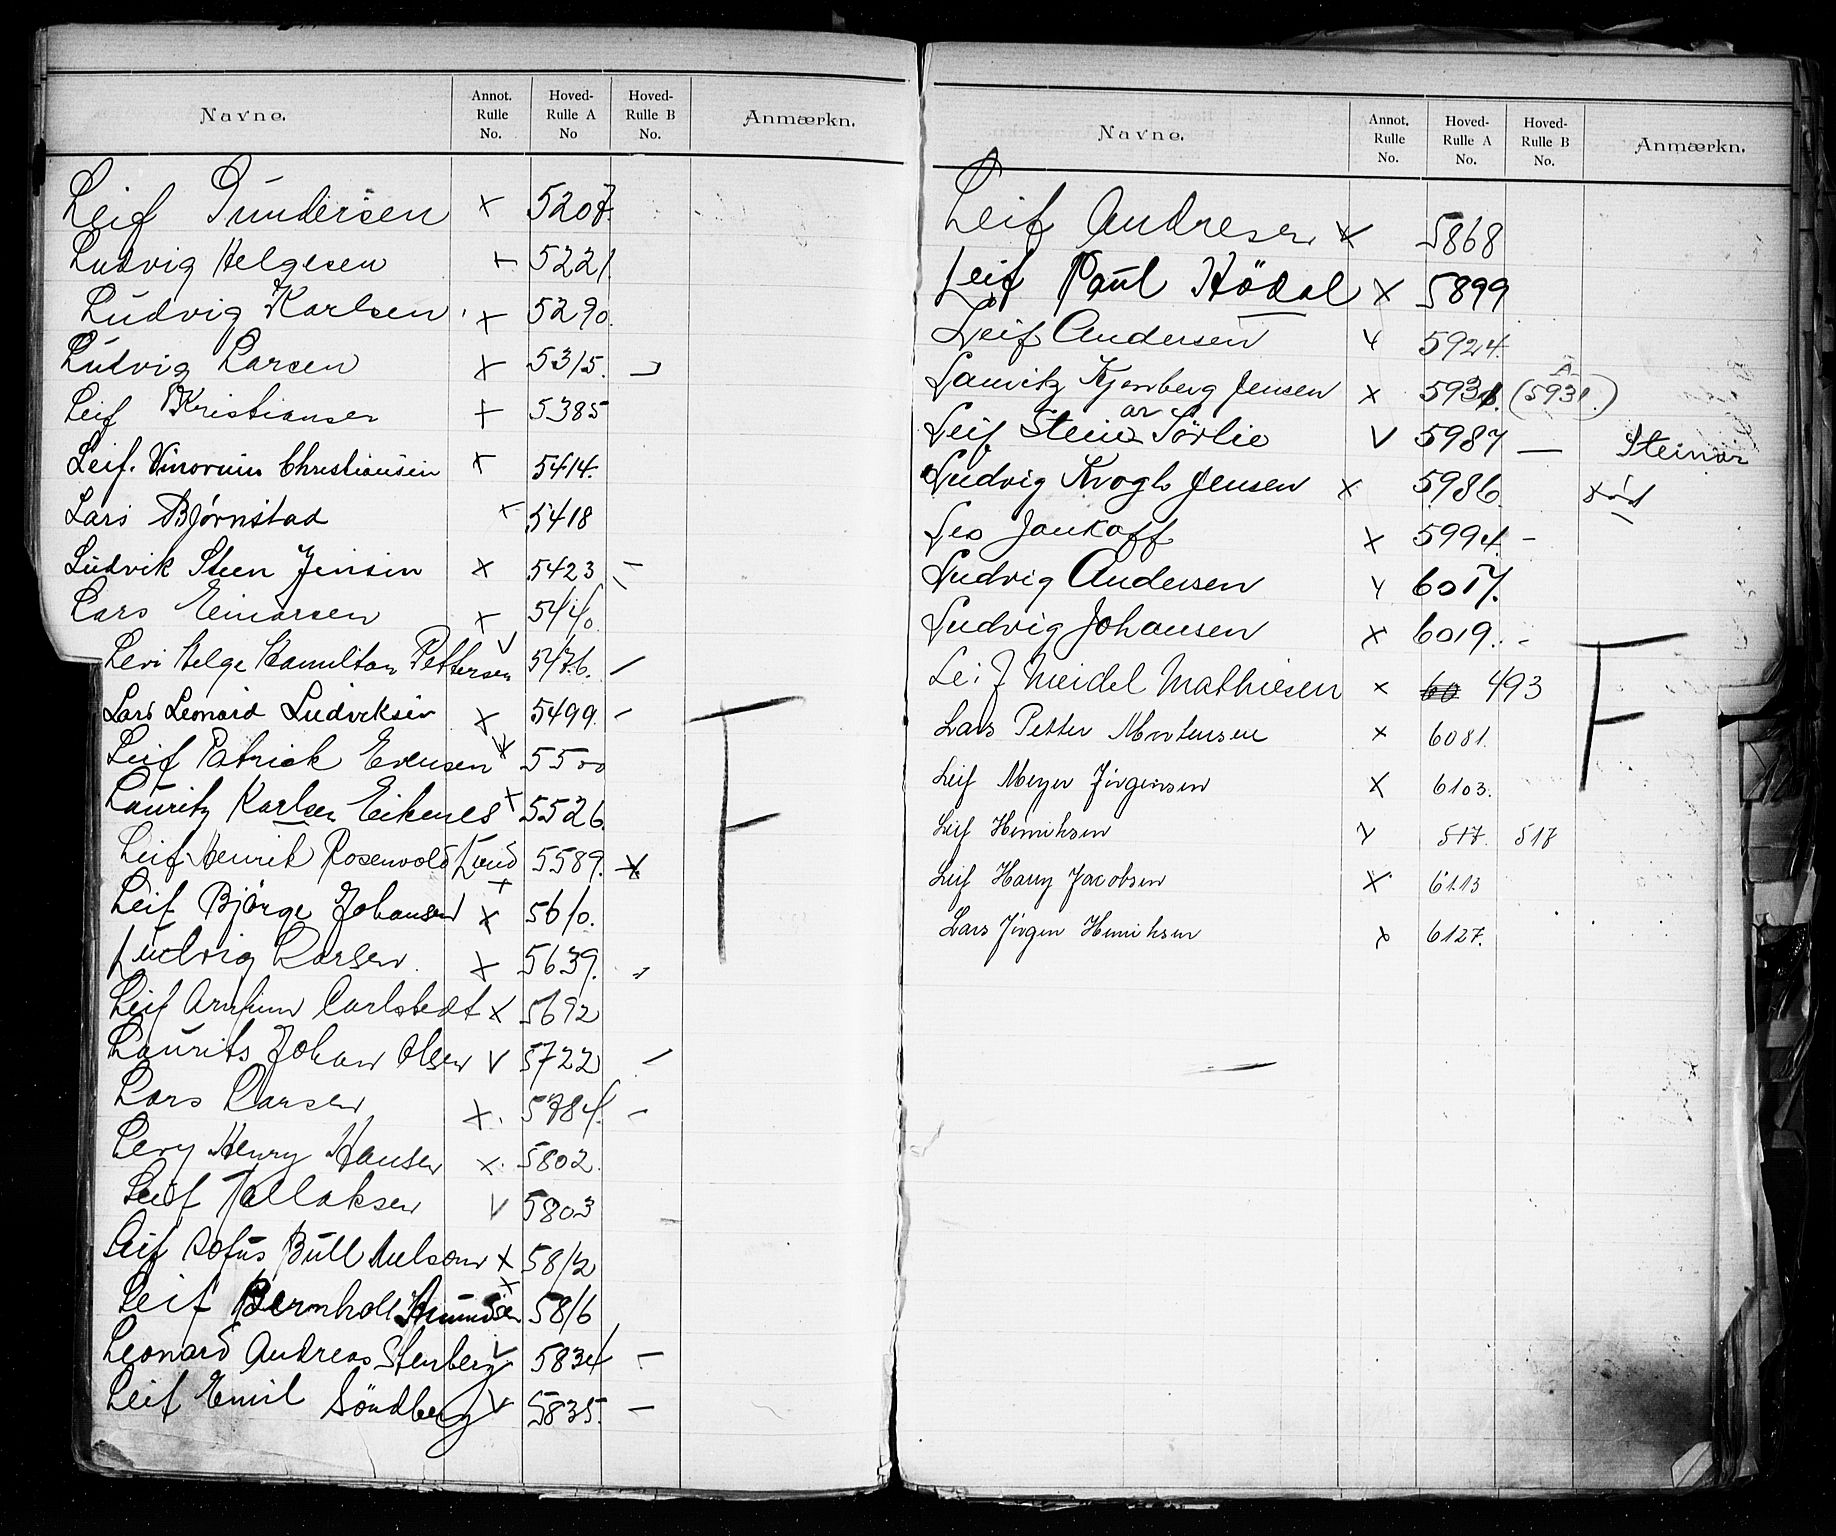 Navne. Annot. Rulle No. Hoved-Rulle A No Hoved-Rulle B No. Anmærkn.
Leif Gundersen x 5207.
Ludvig Helgesen x 5221.
Ludvig Karlsen x 5290.
Ludvig Larsen x 5315.
Leif Kristiansen x 5385
Leif. Christiansen x 5414.
Lars Bjørnstad x 5418
Ludvik Steen Jensen x 5423 –
Lars Einarsen x 5440.
Levi Helge Hamilton Pettersen v 5476. –
Lars Leonard Ludviksen x 5499. –
Leif Patrick Evensen x 5500
Lauritz Karlsen Eikenes x 5526.
Leif Henrik Rosenvold Lund x 5589. x
Leif Bjørge Johansen x 5610.
Ludvig Larsen x 5639.
Leif Arnfinn Carlstedt x 5692
Laurits Johan Olsen v 5722 –
Lars Larsen x. 5784. –
Levy Henry Hansen x. 5802.
Leif Tallaksen v 5803
Leif Sofus Bull Nielsen x 5812
Leif Bernhole Amundsen x 5816
Leonard Andreas Stenberg v 5834 –
Leif Emil Søndberg v 5835. –
F
Navne. Annot. Rulle No. Hoved-Rulle A No. Hoved-Rulle B No. Anmærkn.
Leif Andresen x 5868
Leif Paul Hödal x 5899
Leif Andersen x 5924.
Lauritz Kjernberg Jensen x 5931. (5931.) A
Leif Steinar Sörlie v 5987 — Steinar
Ludvig Krogh Jensen x 5986. død
Leo Jankoff x 5994. –
Ludvig Andersen x 6017.
Ludvig Johansen x 6019. –
Leif Meidel Mathiesen x 60 493
Lars Petter Mortensen x 6081.
Leif Meyer Jörgensen x 6103.
Leif Henriksen x 517. 517
Leif Harry Jacobsen x 6113
Lars Jörgen Henriksen x 6127.
F